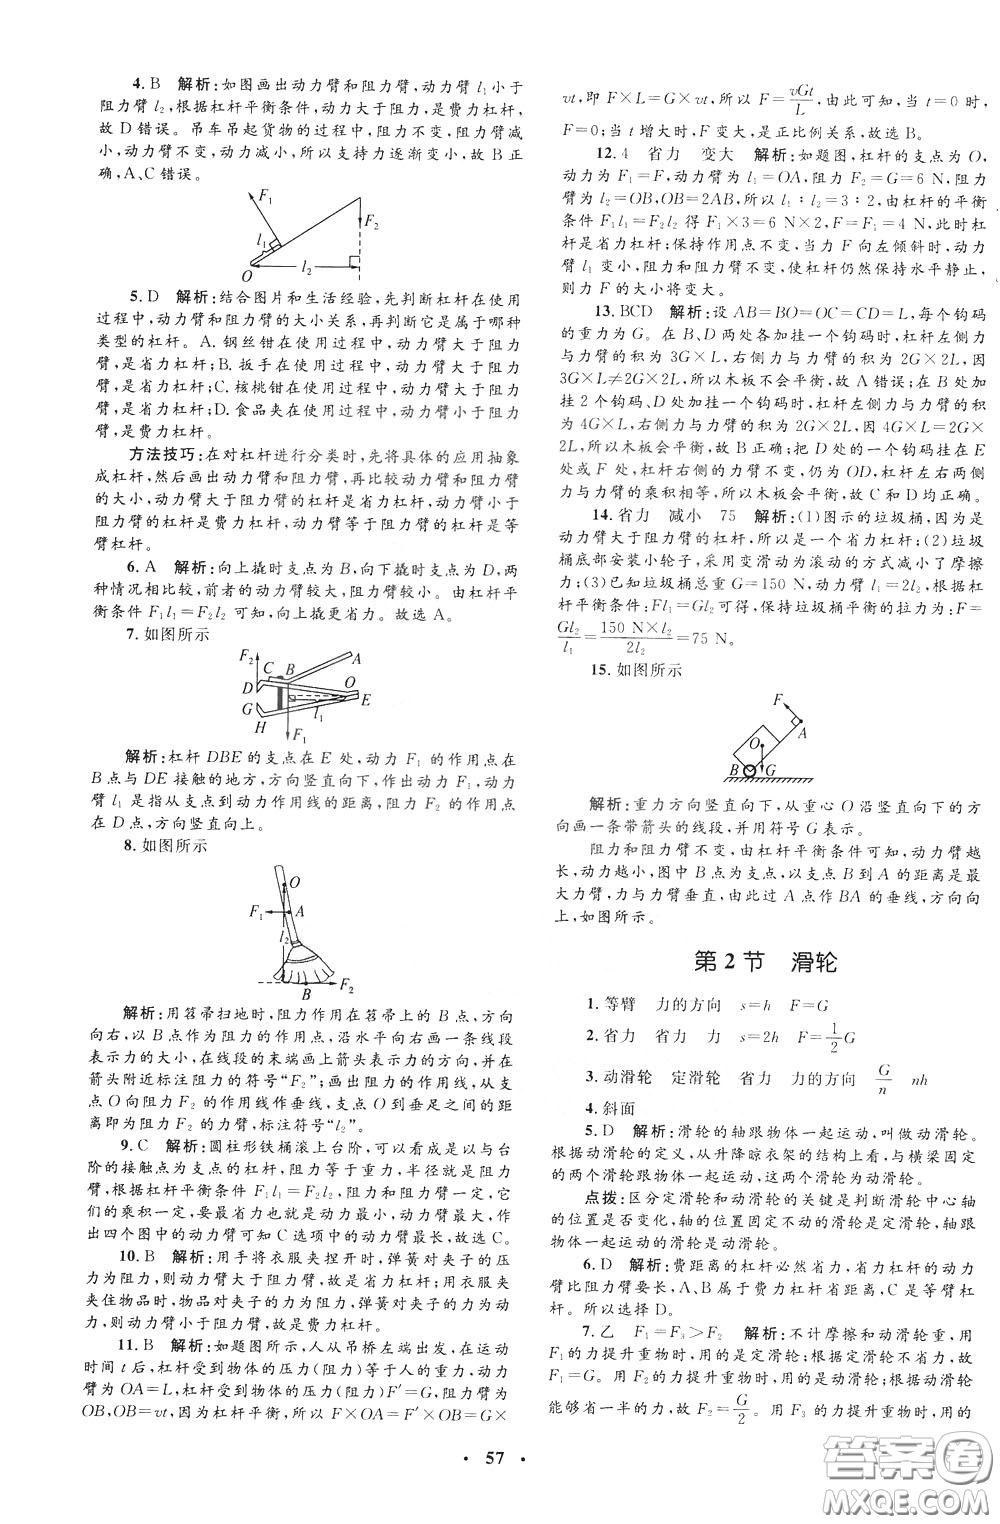 4. B 解析:如图画出动力臂和阻力臂,动力臂 l₁小于
阻力臂 l₂,根据杠杆平衡条件,动力大于阻力,是费力杠杆,
故 D 错误。吊车吊起货物的过程中,阻力不变,阻力臂减
小,动力臂不变,动力减小,所以支持力逐渐变小,故 B 正
确,A、C 错误。
F₁
F₂
l₁
O
l₂
5. D 解析:结合图片和生活经验,先判断杠杆在使用
过程中,动力臂和阻力臂的大小关系,再判断它是属于哪种
类型的杠杆。A. 钢丝钳在使用过程中,动力臂大于阻力
臂,是省力杠杆;B. 扳手在使用过程中,动力臂大于阻力
臂,是省力杠杆;C. 核桃钳在使用过程中,动力臂大于阻力
臂,是省力杠杆;D. 食品夹在使用过程中,动力臂小于阻力
臂,是费力杠杆。
方法技巧:在对杠杆进行分类时,先将具体的应用抽象
成杠杆,然后画出动力臂和阻力臂,再比较动力臂和阻力臂
的大小,动力臂大于阻力臂的杠杆是省力杠杆,动力臂小于
阻力臂的杠杆是费力杠杆,动力臂等于阻力臂的杠杆是等
臂杠杆。
6. A 解析:向上撬时支点为 B,向下撬时支点为 D,两
种情况相比较,前者的动力臂较大,阻力臂较小。由杠杆平
衡条件 F₁l₁=F₂l₂ 可知,向上撬更省力。故选 A。
7. 如图所示
F₂
C B A
D O
G E
l₁
H
F₁
解析:杠杆 DBE 的支点在 E 处,动力 F₁ 的作用点在
B 点与 DE 接触的地方,方向竖直向下,作出动力 F₁,动力
臂 l₁ 是指从支点到动力作用线的距离,阻力 F₂ 的作用点
在 D 点,方向竖直向上。
8. 如图所示
O
F₁ A
l₂
B F₂
解析:用笤帚扫地时,阻力作用在笤帚上的 B 点,方向
向右,以 B 点为阻力的作用点,沿水平向右画一条线段
表示力的大小,在线段的末端画上箭头表示力的方向,并在
箭头附近标注阻力的符号“F₂”;画出阻力的作用线,从支
点 O 向阻力 F₂ 的作用线作垂线,支点 O 到垂足之间的距
离即为阻力 F₂ 的力臂,标注符号“l₂”。
9. C 解析:圆柱形铁桶滚上台阶,可以看成是以与台
阶的接触点为支点的杠杆,阻力等于重力,半径就是阻力
臂,根据杠杆平衡条件 F₁l₁=F₂l₂,阻力和阻力臂一定,它
们的乘积一定,要最省力也就是动力最小,动力臂最大,作
出四个图中的动力臂可知 C 选项中的动力臂最大,故选 C。
10. B 解析:用手将衣服夹捏开时,弹簧对夹子的压
力为阻力,则动力臂大于阻力臂,故是省力杠杆;用衣服夹
夹住物品时,物品对夹子的力为阻力,弹簧对夹子的力为动
力,则动力臂小于阻力臂,故是费力杠杆。
11. B 解析:如题图所示,人从吊桥左端出发,在运动
时间 t 后,杠杆受到物体的压力(阻力)等于人的重力,动力
臂为 OA=L,杠杆受到物体的压力(阻力)F′=G,阻力臂为
OB,OB=vt,因为杠杆平衡,所以 F×OA=F′×OB=G×
vt,即 F×L=G×vt,所以 F=vGt/L,由此可知,当 t=0 时,
F=0;当 t 增大时,F 变大,是正比例关系,故选 B。
12. 4 省力 变大 解析:如题图,杠杆的支点为 O,
动力为 F₁=F,动力臂为 l₁=OA,阻力 F₂=G=6 N,阻力
臂为 l₂=OB,OB=2AB,所以 l₁∶l₂=3∶2,由杠杆的平衡
条件 F₁l₁=F₂l₂ 得 F₁×3=6 N×2,F=F₁=4 N,此时杠
杆是省力杠杆;保持作用点不变,当力 F 向左倾斜时,动力
臂 l₁ 变小,阻力和阻力臂不变,使杠杆仍然保持水平静止,
则力 F 的大小将变大。
13. BCD 解析:设 AB=BO=OC=CD=L,每个钩码
的重力为 G。在 B、D 两处各加挂一个钩码时,杠杆左侧力
与力臂的积为 3G×L,右侧力与力臂的积为 2G×2L,因
3G×L≠2G×2L,所以木板不会平衡,故 A 错误;在 B 处加
挂 2 个钩码、D 处加挂一个钩码时,杠杆左侧力与力臂的积
为 4G×L,右侧力与力臂的积为 2G×2L,因 4G×L=2G×
2L,所以木板会平衡,故 B 正确;把 D 处的一个钩码挂在 E
处或 F 处,杠杆右侧的力臂不变,仍为 OD,杠杆左右两侧
力与力臂的乘积相等,所以木板会平衡,故 C 和 D 均正确。
14. 省力 减小 75 解析:(1)图示的垃圾桶,因为是
动力臂大于阻力臂的杠杆,所以是一个省力杠杆;(2)垃圾
桶底部安装小轮子,采用变滑动为滚动的方式减小了摩擦
力;(3)已知垃圾桶总重 G=150 N,动力臂 l₁=2l₂,根据杠
杆平衡条件:Fl₁=Gl₂可得,保持垃圾桶平衡的拉力为:F=
Gl₂/l₁=150 N×l₂/2l₂=75 N。
15. 如图所示
F
O A
B G
解析:重力方向竖直向下,从重心 O 沿竖直向下的方
向画一条带箭头的线段,并用符号 G 表示。
阻力和阻力臂不变,由杠杆平衡条件可知,动力臂越
长,动力越小,图中 B 点为支点,以支点 B 到 A 的距离是最
大力臂,力与力臂垂直,由此过 A 点作 BA 的垂线,方向向
上,如图所示。
第 2 节 滑轮
1. 等臂 力的方向 s=h F=G
2. 省力 省力 力 s=2h F=1/2G
3. 动滑轮 定滑轮 省力 力的方向 G/n nh
4. 斜面
5. D 解析:滑轮的轴跟物体一起运动,叫做动滑轮。
根据动滑轮的定义,从升降晾衣架的结构上看,与横梁固定
的两个滑轮跟物体一起运动,这两个滑轮为动滑轮。
点拨:区分定滑轮和动滑轮的关键是判断滑轮中心轴
的位置是否变化,轴的位置固定不动的滑轮是定滑轮,轴跟
物体一起运动的滑轮是动滑轮。
6. D 解析:费距离的杠杆必然省力,省力杠杆的动力
臂比阻力臂要长,A、B 属于费力杠杆省距离,C 是等臂杠
杆。所以选择 D。
7. 乙 F₁=F₃>F₂ 解析:不计摩擦和动滑轮重,用
F₁ 的力提升重物时,用的是定滑轮;根据定滑轮不省力,故
F₁=G。用 F₂ 的力提升重物时,用的是动滑轮;根据动滑轮
能够省一半的力,故 F₂=G/2。用 F₃ 的力提升重物时,用的
• 57 •
答案圈
MXQE.COM